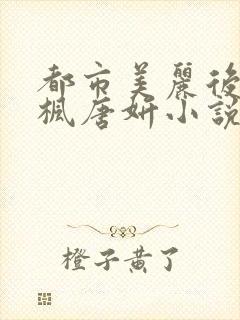 都市美麗後
楓唐妍小説
橙子黄了